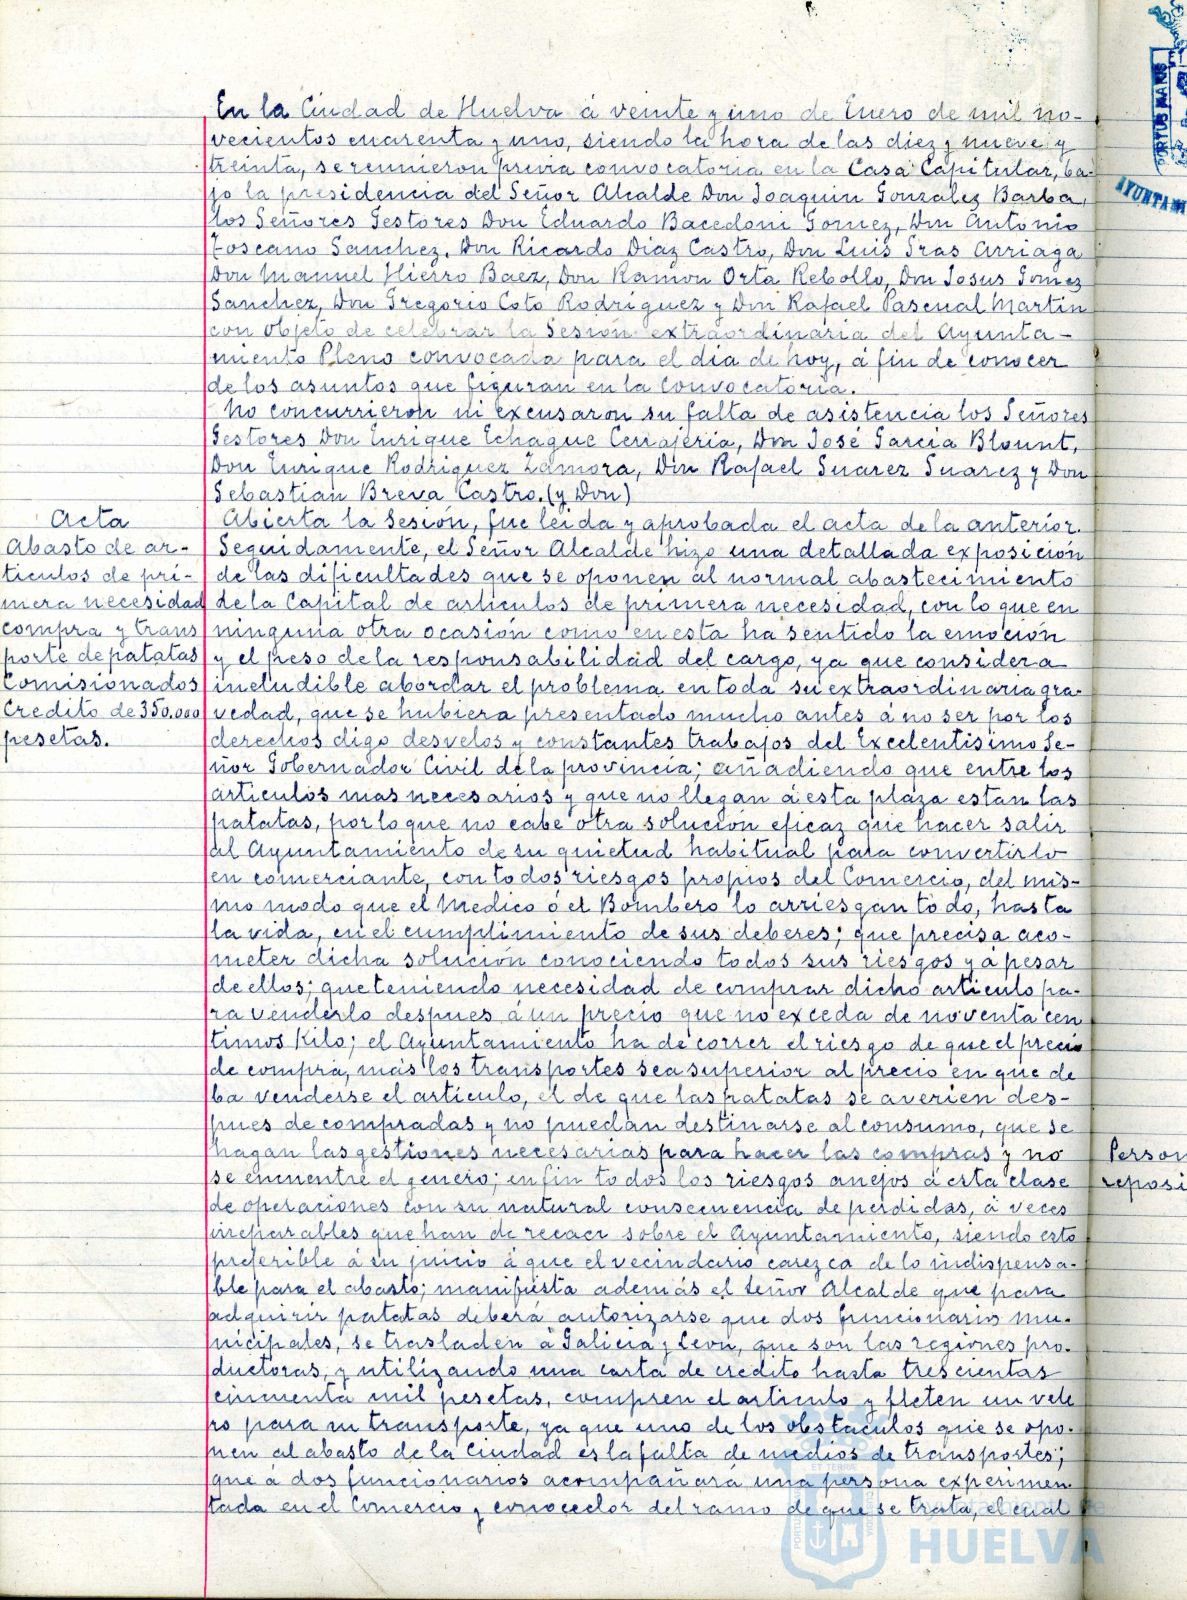 En la Ciudad de Huelva á veinte y uno de Enero de mil no-
vecientos cuarenta y uno, siendo la hora de las diez y nueve y
treinta, se reunieron previa convocatoria en la Casa Capitular, ba-
jo la presidencia del Señor Alcalde Don Joaquin Gonzalez Barba,
los Señores Gestores Don Eduardo Bacedoni Gomez, Don Antonio
Toscano Sanchez, Don Ricardo Diaz Castro, Don Luis Tras Arriaga
Don Manuel Hierro Baez, Don Ramon Orta Rebollo, Don Josus Gomez
Sanchez, Don Gregorio Coto Rodríguez y Don Rafael Pascual Martin
con objeto de celebrar la Sesión extraordinaria del Ayunta-
miento Pleno convocada para el dia de hoy, á fin de conocer
de los asuntos que figuran en la convocatoria.
No concurrieron ni excusaron su falta de asistencia los Señores
Gestores Don Enrique Echague Cerrajeria, Don José Garcia Blount,
Don Enrique Rodriguez Zamora, Don Rafael Suarez Suarez y Don
Sebastian Breva Castro. (y Don)
Acta
Abasto de ar-
ticulos de pri-
mera necesidad
compra y trans
porte de patatas
Comisionados
Credito de 350.000
pesetas.
Abierta la Sesión, fue leida y aprobada el acta de la anterior.
Seguidamente, el Señor Alcalde hizo una detallada exposición
de las dificultades que se oponen al normal abastecimiento
de la Capital de articulos de primera necesidad, con lo que en
ninguna otra ocasión como en esta ha sentido la emoción
y el peso de la responsabilidad del cargo, ya que considera
ineludible abordar el problema en toda su extraordinaria gra-
vedad, que se hubiera presentado mucho antes á no ser por los
derechos digo desvelos y constantes trabajos del Excelentisimo Se-
ñor Gobernador Civil de la provincia; añadiendo que entre los
articulos mas necesarios y que no llegan á esta plaza estan las
patatas, por lo que no cabe otra solución eficaz que hacer salir
al Ayuntamiento de su quietud habitual para convertirlo
en comerciante, con todos riesgos propios del Comercio, del mis-
mo modo que el Medico ó el Bombero lo arriesgan todo, hasta
la vida, en el cumplimiento de sus deberes; que precisa aco-
meter dicha solución conociendo todos sus riesgos y á pesar
de ellos; que teniendo necesidad de comprar dicho articulo pa-
ra venderlo despues á un precio que no exceda de noventa cen
timos Kilo; el Ayuntamiento ha de correr el riesgo de que el precio
de compra, más los transportes sea superior al precio en que de
ba venderse el artículo, el de que las patatas se averien des-
pues de compradas y no puedan destinarse al consumo, que se
hagan las gestiones necesarias para hacer las compras y no
se encuentre el genero; en fin todos los riesgos anejos á esta clase
de operaciones con su natural consecuencia de perdidas, á veces
irreparables que han de recaer sobre el Ayuntamiento, siendo esto
preferible á su juicio á que el vecindario carezca de lo indispensa-
ble para el abasto; manifiesta además el Señor Alcalde que para
adquirir patatas deberá autorizarse que dos funcionarios mu-
nicipales, se trasladen á Galicia y Leon, que son las regiones pro-
ductoras, y utilizando una carta de credito hasta trescientas
cincuenta mil pesetas, compren el articulo y fleten un vele
ro para su transporte, ya que uno de los obstaculos que se opo-
nen al abasto de la Ciudad es la falta de medios de transportes;
que á dos funcionarios acompañará una persona experimen
tada en el Comercio y conocedor del ramo de que se trata, el cual
PORTUS MARIS
AYUNTAMI
Person
reposi
HUELVA